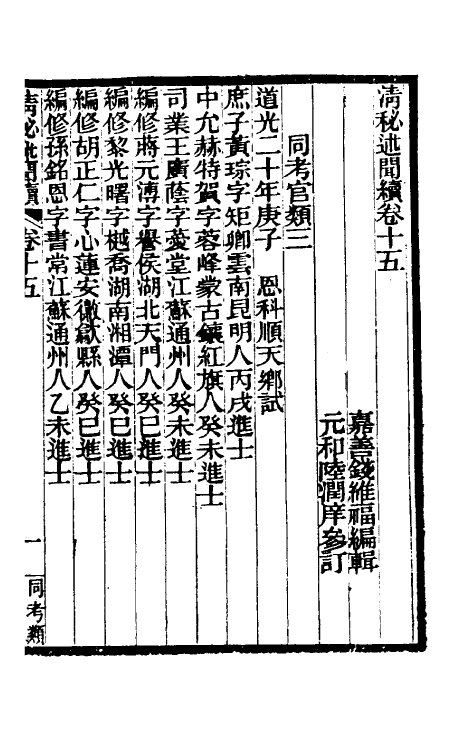 清秘述聞續卷十五
嘉善錢維福編輯
元和陸潤庠參訂
同考官類三
道光二十年庚子　恩科順天鄉試
庶子黃琮字矩卿雲南昆明人丙戌進士
中允赫特賀字蓉峰蒙古鑲紅旗人癸未進士
司業王廣蔭字薆堂江蘇通州人癸未進士
編修蔣元溥字譽侯湖北天門人癸巳進士
編修黎光曙字樾喬湖南湘潭人癸巳進士
編修胡正仁字心蓮安徽歙縣人癸巳進士
編修孫銘恩字書常江蘇通州人乙未進士
清秘述聞續　卷十五　一　同考類